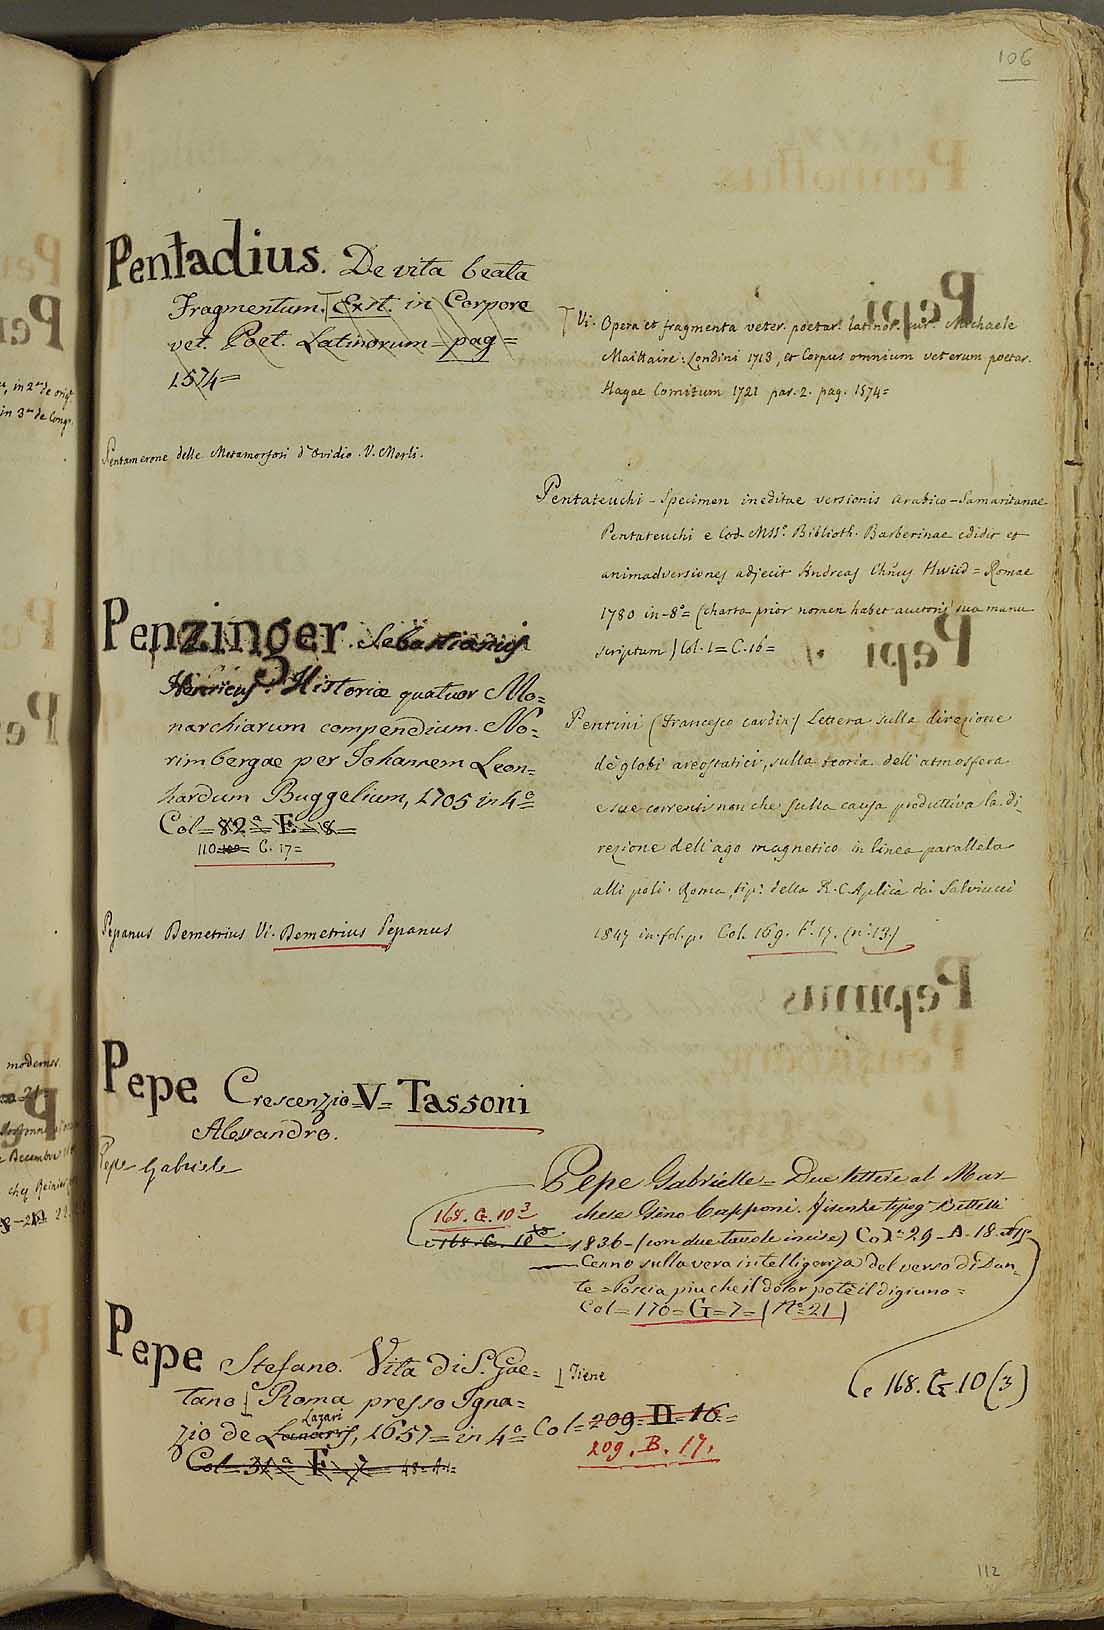 106
Pentadius. De vita beata
Fragmentum. Exst. in Corpore
vet. Poet. Latinorum = pag =
1574 =
Vi. Opera et fragmenta veter. poetar. latinor. cur. Michaele
Maittaire: Londini 1713, et Corpus omnium veterum poetar.
Hagae Comitum 1721 par. 2. pag. 1574 =
Pentamerone delle Metamorfosi d'Ovidio. V. Morli.
Pentateuchi - Specimen ineditae versionis Arabico-Samaritanae
Pentateuchi e Cod. Mss.º Biblioth. Barberinae edidit et
animadversiones adjecit Andreas Chñus Hwiid = Romae
1780 in-8º = (charta prior nomen habet auctoris sua manu
scriptum) Col. 1 = C. 16 =
Penzinger. Sebastianus
Henricus. Historiæ quatuor Mo=
narchiarum compendium. No=
rimbergae per Johannem Leon=
hardum Buggelium, 1705 in 4º =
Col = 82ª = E = 8 =
110 C. 17 =
Pentini (Francesco cardin.) Lettera sulla direzione
de' globi areostatici, sulla teoria dell'atmosfera
e sue correnti non che sulla causa produttiva la di_
rezione dell'ago magnetico in linea parallela
alli poli. Roma, tip. della R. C. Aplica da Salviucci
1847 in fol. p. Col. 169. F. 17. (nº 13)
Pepanus Demetrius Vi. Demetrius Pepanus
Pepe Crescenzio = V = Tassoni
Alesandro.
Pepe Gabriele
Pepe Gabrielle = Due lettere al Mar_
chese Gino Capponi. Firenze tipog.
1836 - (con due tavole incise) Col. 29 - A. 18.
168. G. 10 3
168. G. 10
Cenno sulla vera intelligenza del verso di Dan_
te = Poscia piu che il dolor pote il digiuno =
Col = 170 = G = 7 = (Nº 21)
e 168. G. 10 (3)
Pepe Stefano. Vita di S. Gae=
Tiene
tano Roma presso Igna=
Lazari
zio de Lazaris, 1657 = in 4º =
Col = 209 = D = 16 =
209. B. 17.
Col = 31ª = F = 7
112